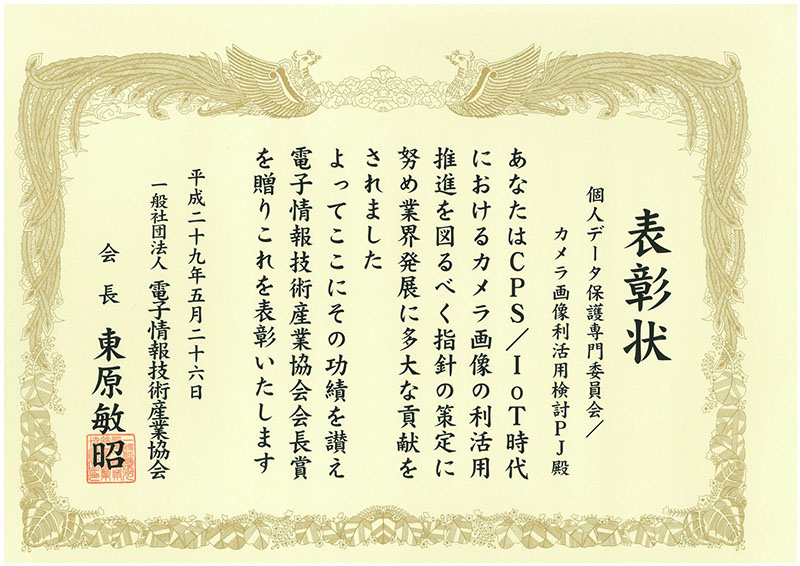 表彰状
個人データ保護専門委員会／
カメラ画像利活用検討PJ殿
あなたはCPS／IoT時代
におけるカメラ画像の利活用
推進を図るべく指針の策定に
努め業界発展に多大な貢献を
されました
よってここにその功績を讃え
電子情報技術産業協会会長賞
を贈りこれを表彰いたします
平成二十九年五月二十六日
一般社団法人 電子情報技術産業協会
会長 東原敏昭